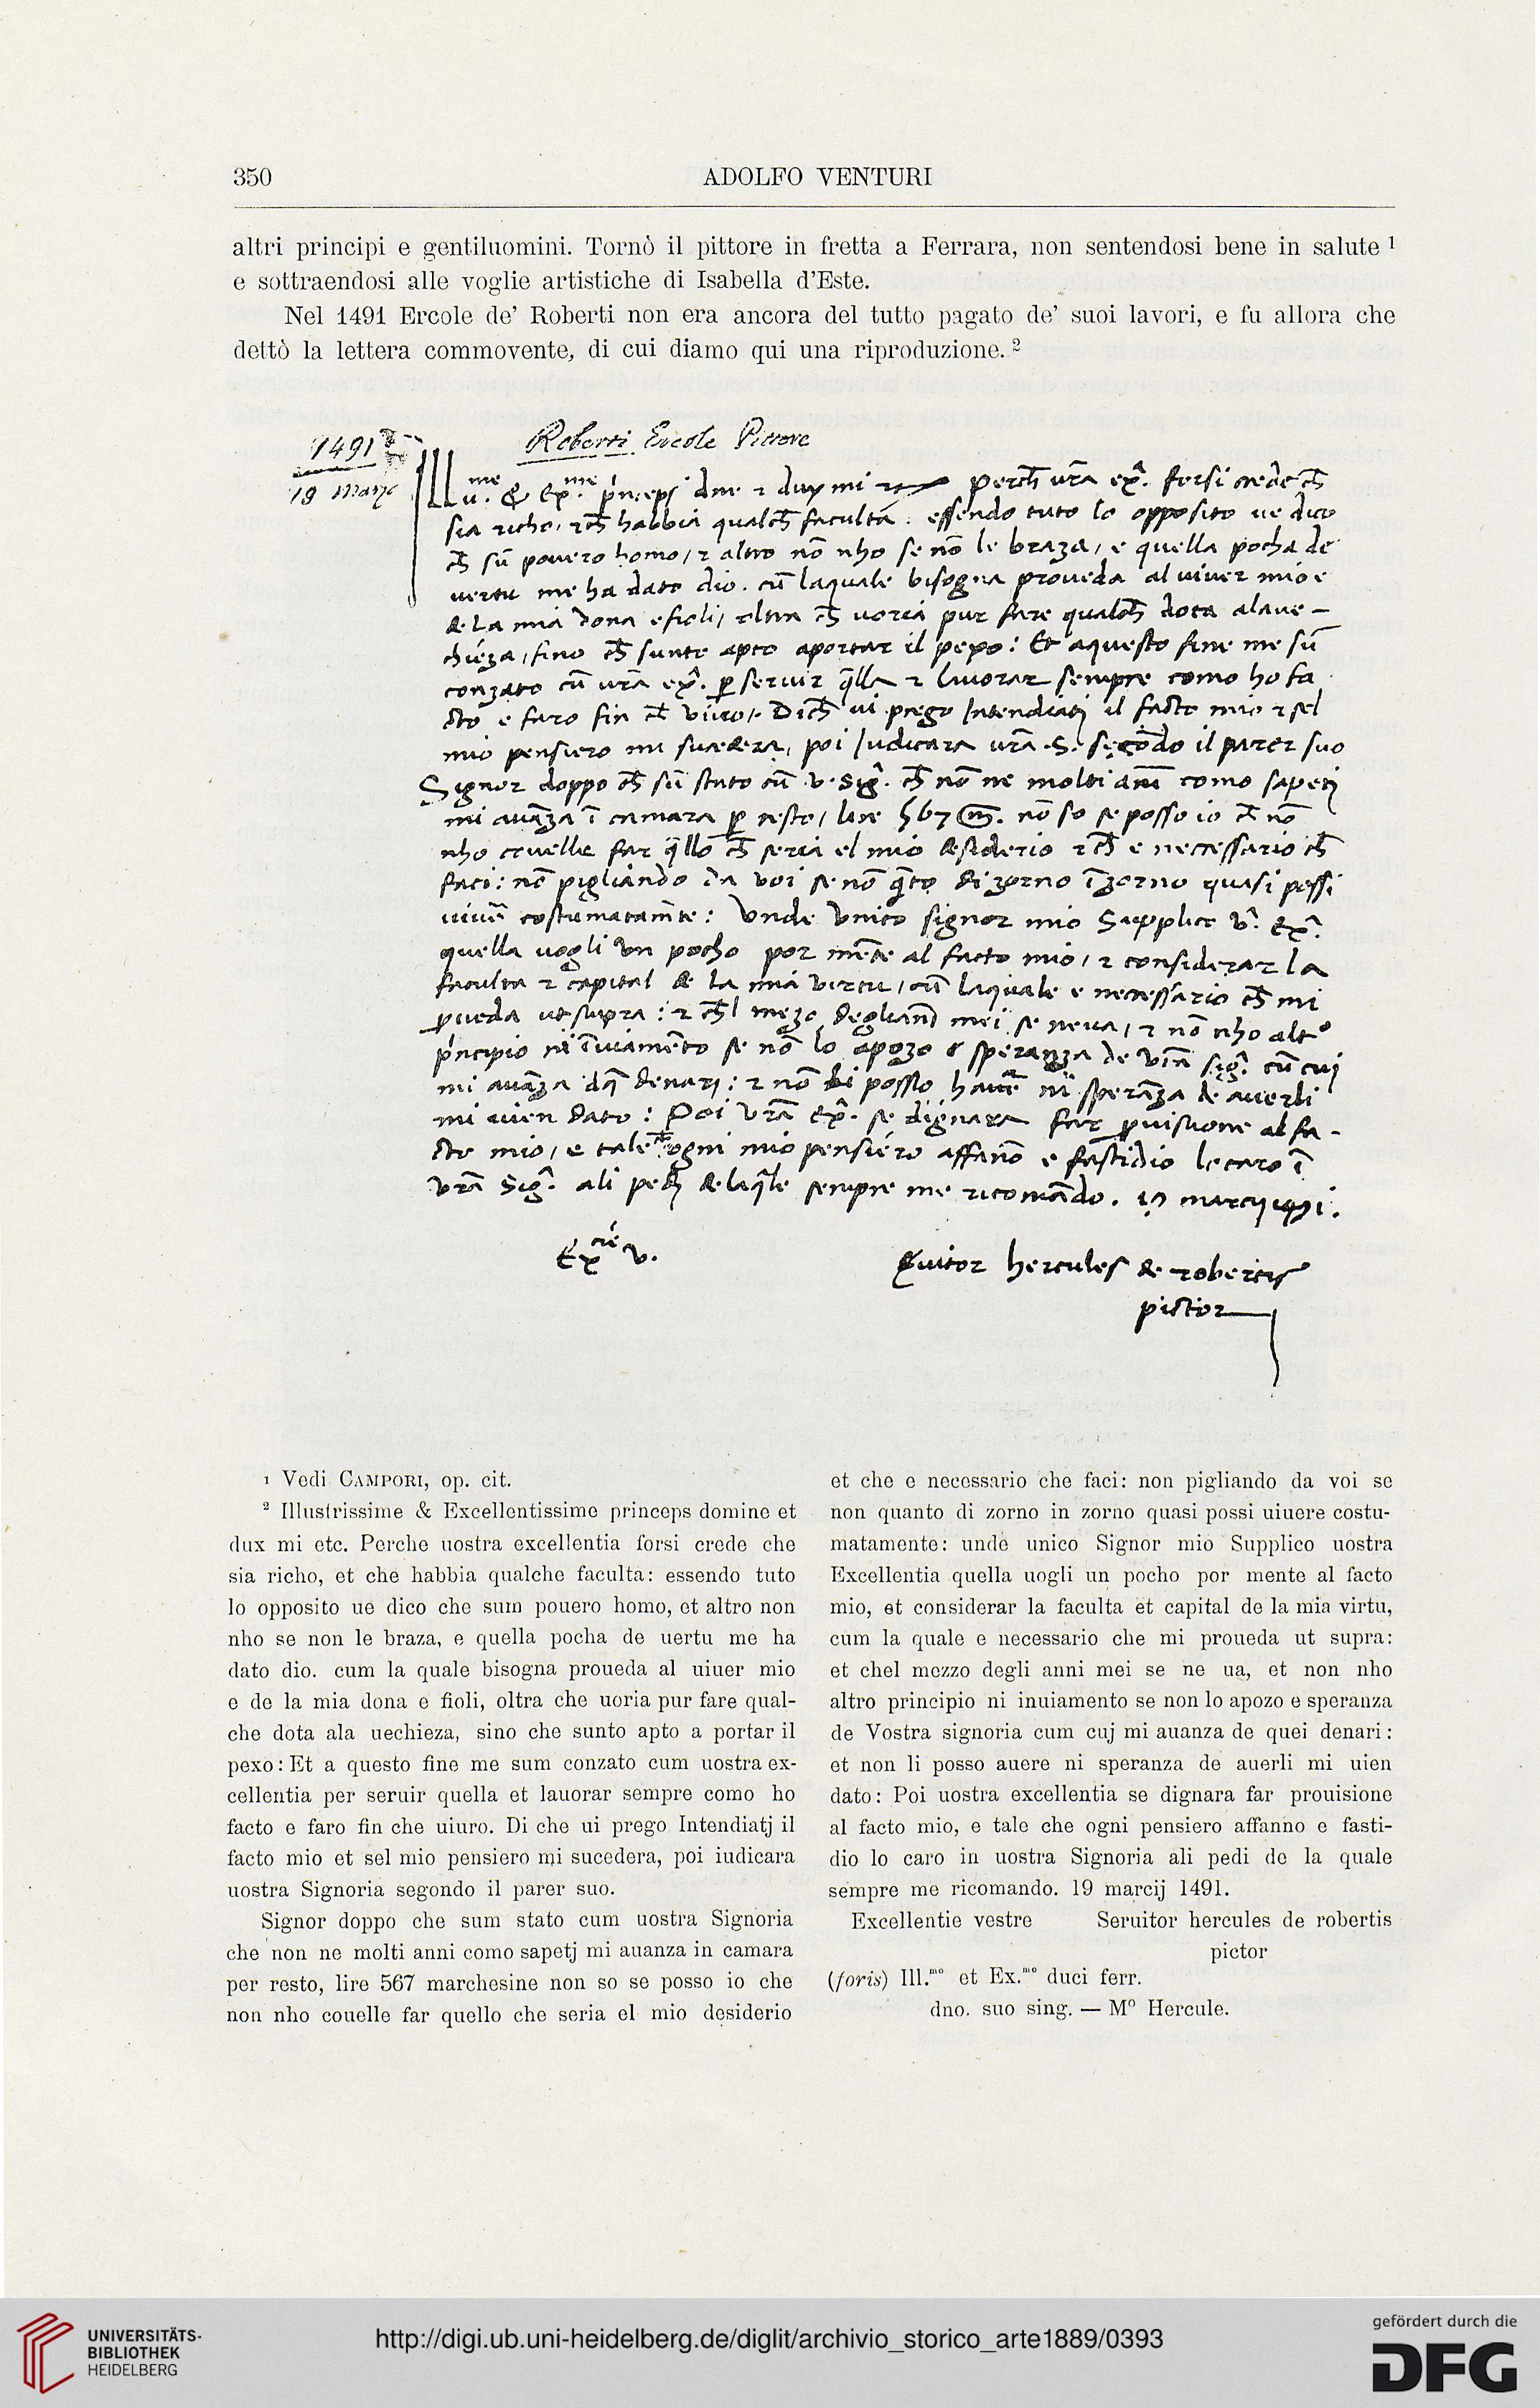 350
ADOLFO VENTURI
altri principi e gentiluomini. Tornò il pittore in fretta a Ferrara, non sentendosi bene in salute ¹
e sottraendosi alle voglie artistiche di Isabella d'Este.
Nel 1491 Ercole de' Roberti non era ancora del tutto pagato de' suoi lavori, e fu allora che
dettò la lettera commovente, di cui diamo qui una riproduzione. ²
1491
19 Marzo
Roberti Ercole Pittore
Ill.me & Ex.me pńceps dne ꝛ dux mi perch̄ vrā ex̂. forsi crede ch̄
sia richo, ꝛ ch̄ habbia qualch̄ facultà. essendo tuto lo opposito ue dico
ch̄ sū pouero homo, ꝛ altro nō nho se nō le braza, e quella pocha de
uertu me ha dato dio. cū laquale bisogna proueda al viuer mio e
de la mia dona e fioli, oltra ch̄ uoria pur fare qualch̄ dota alaue-
chieza, sino ch̄ sunto apto aportar il pexo: Et aquesto fine me sū
conzato cū vrā ex̂. p seruir qlla ꝛ lauorar sempre como ho fa
cto e faro fin ch̄ viuro. Dich̄ ui prego Intendiatj il facto mio ꝛ sel
mio pensiero mi sucedera, poi Iudicara vrā .S. secōdo il parer suo
Signor doppo ch̄ sū stato cū v. siĝ. ch̄ nō ne molti anī como sapetj
mi auāza ī camara p resto, lire 567 m̄. nō so se posso io ch̄ nō
nho couelle far qllo ch̄ seria el mio desiderio ꝛ ch̄ e necessario ch̄
faci: nō pigliando da voi se nō qto di zorno ī zorno quasi possi
viuē costumatamte: Vnde Vnico signor mio Supplico v̂. Ex̂.
quella uogli vn pocho por mēte al facto mio, ꝛ considerar la
faculta ꝛ capital de la mia virtu, cū laquale e necessario ch̄ mi
pueda ut supra: ꝛ ch̄l mezo deglianī mei se neua, ꝛ nō nho alto
pńcipio ni īuiamēto se nō lo apozo e speranza de vrā siĝ. cū cuj
mi auāza dq̄ denarj: ꝛ nō li posso hauē ni sperāza de auerli
mi uien dato: Poi vrā ex̂. se dignara far puisione al fa-
cto mio, e tale ch̄ ogni mio pensiero affanō e fastidio lo caro ī
vrā Siĝ. ali pedj delaqle sempre me ricomādo. 19 marcij 1491.
Ex.cie v.
Suitor hercules de robertis
pictor
¹ Vedi CAMPORI, op. cit.
² Illustrissime & Excellentissime princeps domine et
dux mi etc. Perche uostra excellentia forsi crede che
sia richo, et che habbia qualche faculta: essendo tuto
lo opposito ue dico che sum pouero homo, et altro non
nho se non le braza, e quella pocha de uertu me ha
dato dio. cum la quale bisogna proueda al uiuer mio
e de la mia dona e fioli, oltra che uoria pur fare qual-
che dota ala uechieza, sino che sunto apto a portar il
pexo: Et a questo fine me sum conzato cum uostra ex-
cellentia per seruir quella et lauorar sempre como ho
facto e faro fin che uiuro. Di che ui prego Intendiatj il
facto mio et sel mio pensiero mi sucedera, poi iudicara
uostra Signoria segondo il parer suo.
Signor doppo che sum stato cum uostra Signoria
che non ne molti anni como sapetj mi auanza in camara
per resto, lire 567 marchesine non so se posso io che
non nho couelle far quello che seria el mio desiderio
et che e necessario che faci: non pigliando da voi se
non quanto di zorno in zorno quasi possi uiuere costu-
matamente: unde unico Signor mio Supplico uostra
Excellentia quella uogli un pocho por mente al facto
mio, et considerar la faculta et capital de la mia virtu,
cum la quale e necessario che mi proueda ut supra:
et chel mezzo degli anni mei se ne ua, et non nho
altro principio ni inuiamento se non lo apozo e speranza
de Vostra signoria cum cuj mi auanza de quei denari:
et non li posso auere ni speranza de auerli mi uien
dato: Poi uostra excellentia se dignara far prouisione
al facto mio, e tale che ogni pensiero affanno e fasti-
dio lo caro in uostra Signoria ali pedi de la quale
sempre me ricomando. 19 marcij 1491.
Excellentie vestre Seruitor hercules de robertis
pictor
(foris) Ill.mo et Ex.mo duci ferr.
dno. suo sing. — Mº Hercule.
UNIVERSITÄTS-
BIBLIOTHEK
HEIDELBERG
http://digi.ub.uni-heidelberg.de/diglit/archivio_storico_arte1889/0393
gefördert durch die
DFG